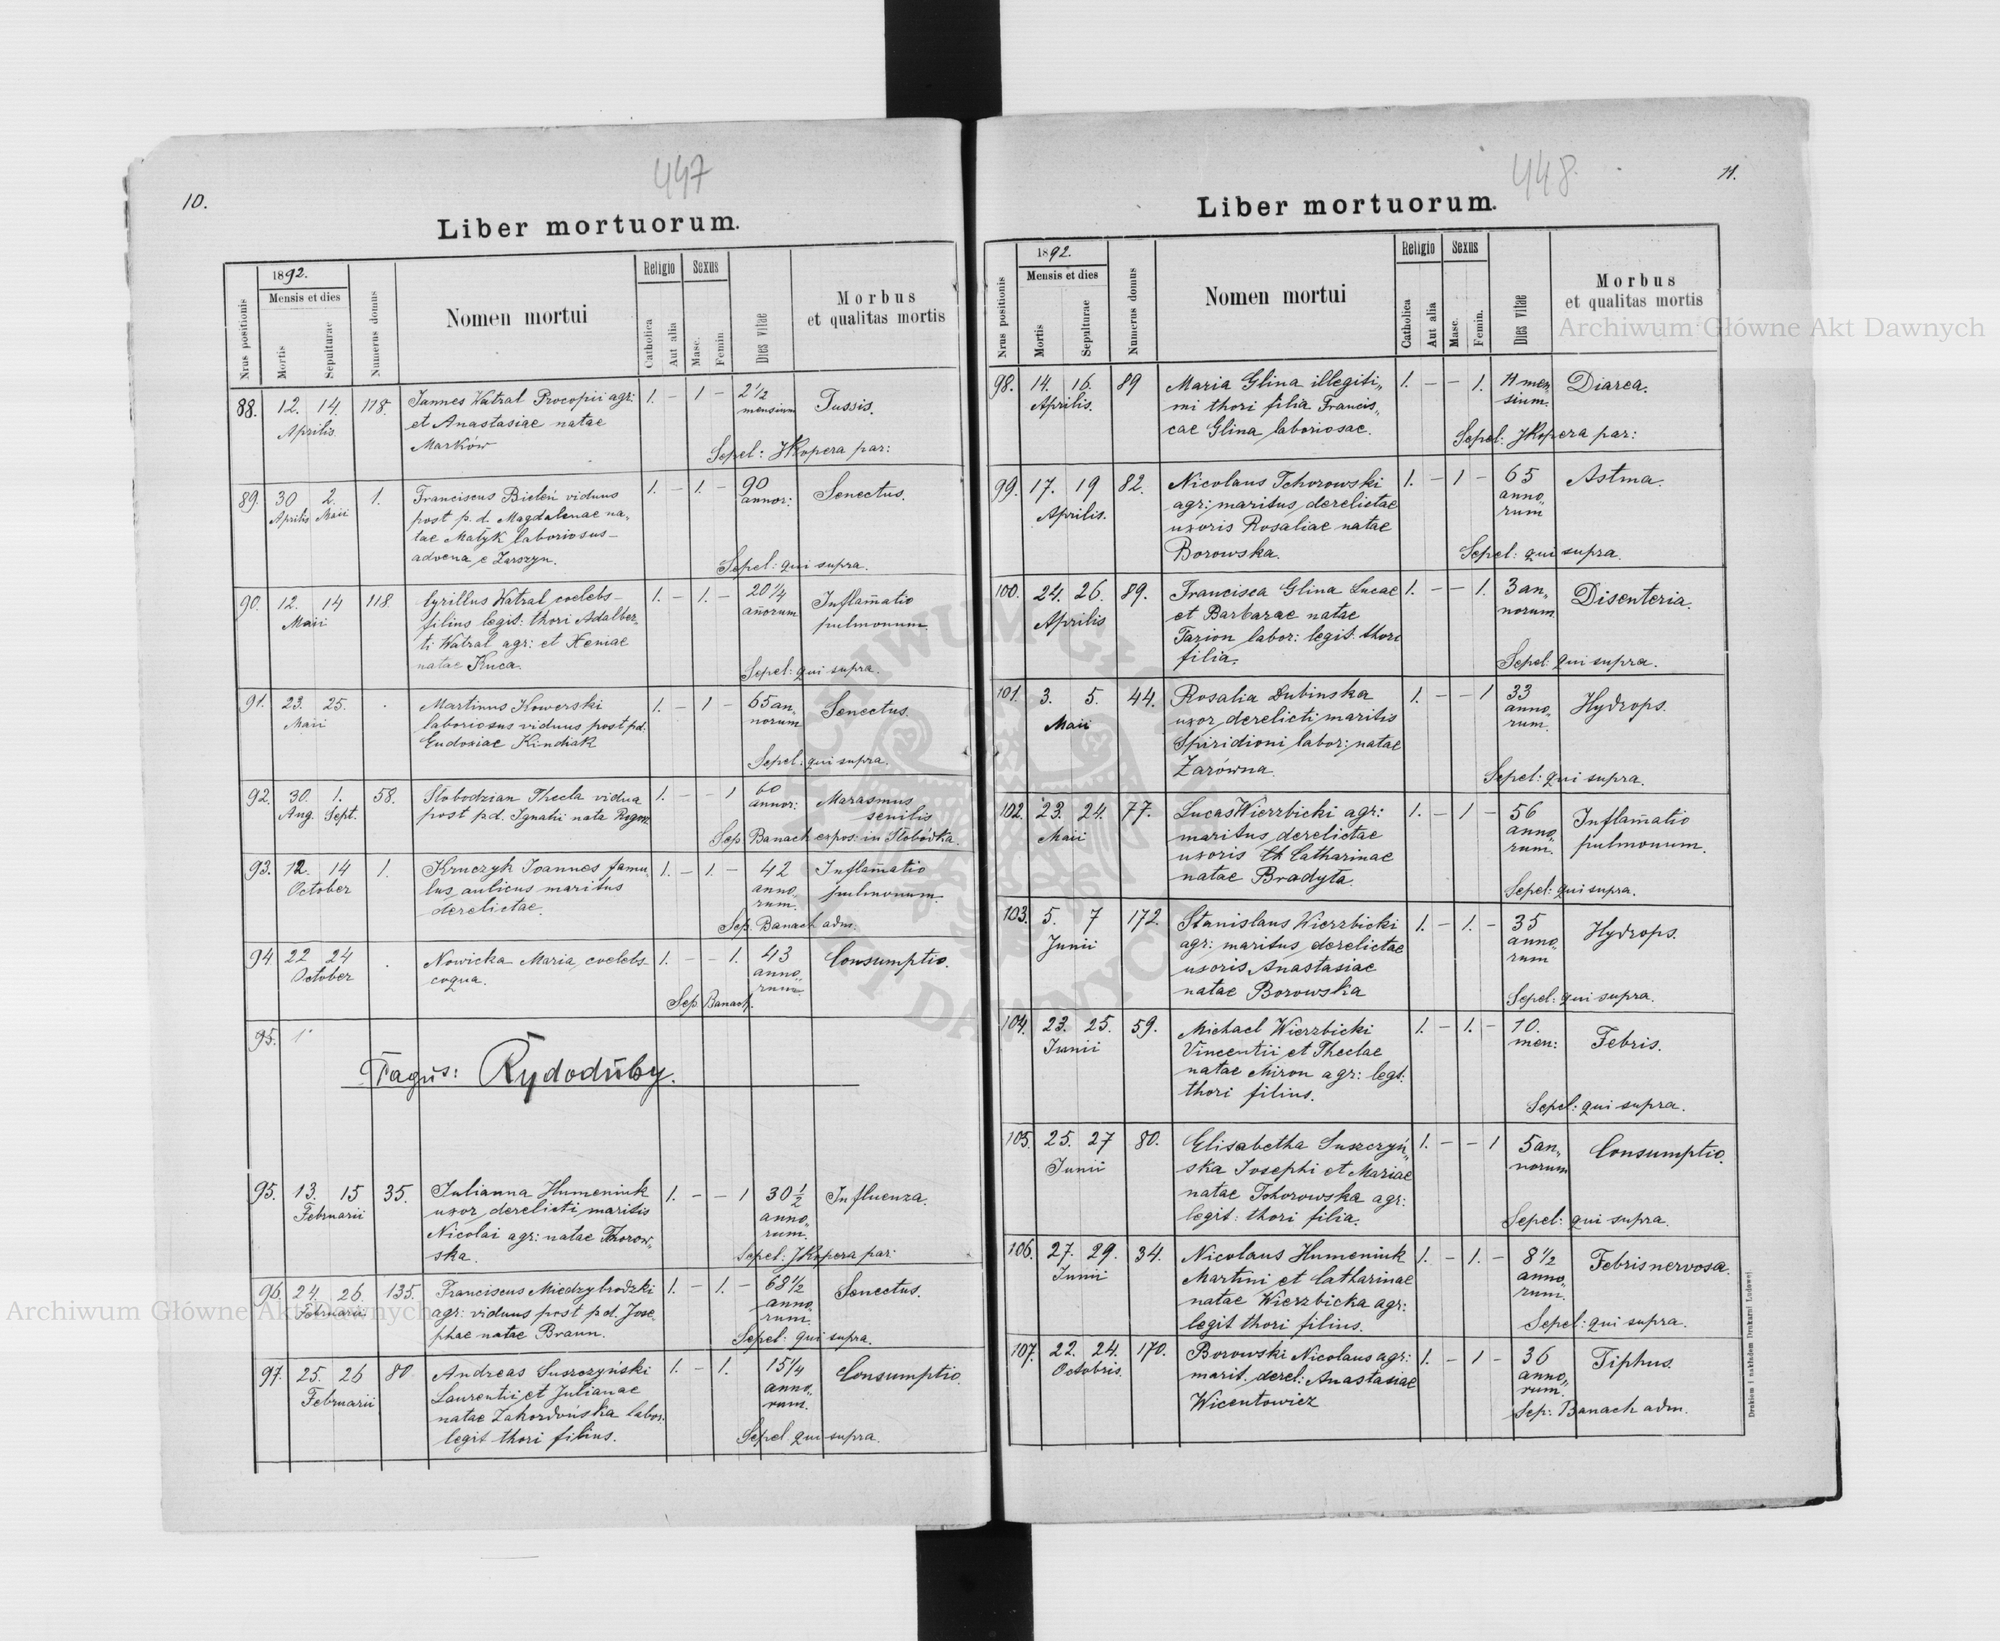 447
10.
Liber mortuorum.
Nrus positionis
1892.
Mensis et dies
Mortis
Sepulturae
Numerus domus
Nomen mortui
Religio
Catholica
Aut alia
Sexus
Masc.
Femin.
Dies vitae
Morbus
et qualitas mortis
88. 12. 14. 118. Joannes Watral Procopii agr: 1. – 1 – 2 1/2 Tussis.
Aprilis. et Anastasiae natae mensium
Marków Sepel: JKopera par:
89. 30 2. 1. Franciscus Bieleń viduus 1. – 1. – 90 Senectus.
Aprilis Maii post p. d. Magdalenae na„ annor:
tae Matyk laboriosus –
advena e Zarszyn. Sepel: qui supra.
90. 12. 14 118. Cyrillus Watral coelebs – 1. – 1. – 20 1/4 Inflam̄atio
Maii filius legit: thori Adalber„ an̄orum pulmonum.
ti Watral agr: et Xeniae
natae Kuca. Sepel: qui supra.
91. 23. 25. . Martinus Kowerski 1. – 1 – 65 an„ Senectus.
Maii laboriosus viduus post pd. norum
Eudoxiae Kindiak
Sepel: qui supra.
92. 30. 1. 58. Słobodzian Thecla vidua 1. – – 1 60 Marasmus
Aug. Sept. post pd. Ignatii nata annor: senilis
Sep. Banach expos: in Słobódka.
93. 12. 14 1. Kruczyk Joannes famu„ 1. – 1. – 42 Inflam̄atio
October lus aulicus maritus anno„ pulmonum
derelictae. rum.
Sep. Banach adm.
94 22 24 . Nowicka Maria, coelebs – 1. – – 1. 43 Consumptio.
October coqua. anno„
rum.
Sep. Banach.
95. 1
Pagus: Rydoduby.
95. 13. 15 35. Julianna Humeniuk 1. – – 1 30 1/2 Influenza.
Februarii uxor derelicti maritis anno„
Nicolai agr: natae Thorow„ rum.
ska. Sepel: JKopera par:
96. 24. 26. 135. Franciscus Miedzybrodzki 1. – 1. – 68 1/2 Senectus.
Februarii agr: viduus post pd. Jose„ anno„
phae natae Braun. rum.
Sepel: qui supra.
97. 25. 26 80 Andreas Suszczyński 1. – 1. 15 1/4 Consumptio.
Februarii Laurentii et Julianae anno„
natae Zakordońska labor. rum.
legit thori filius. Sepel qui supra.
448.
11.
Liber mortuorum.
Nrus positionis
1892.
Mensis et dies
Mortis
Sepulturae
Numerus domus
Nomen mortui
Religio
Catholica
Aut alia
Sexus
Masc.
Femin.
Dies vitae
Morbus
et qualitas mortis
98. 14. 16. 89 Maria Glina illegiti„ 1. – – 1. 11 men Diarea.
Aprilis. mi thori filia Francis„ sium.
cae Glina laboriosae. Sepel: JKopera par:
99. 17. 19 82. Nicolaus Tchorowski 1. – 1 – 65 Astma.
Aprilis. agr: maritus derelictae anno„
uxoris Rosaliae natae rum
Borowska. Sepel: qui supra.
100. 24. 26. 89. Francisca Glina Lucae 1. – – 1. 3 an„ Disenteria.
Aprilis et Barbarae natae norum
Tazion labor: legit: thori
filia. Sepel: qui supra.
101. 3. 5. 44. Rosalia Dubinska 1. – – 1 33 Hydrops.
Maii uxor derelicti maritis anno„
Spiridioni labor: natae rum.
Żarówna. Sepel: qui supra.
102. 23. 24. 77. Lucas Wierzbicki agr: 1. – 1 – 56 Inflam̄atio
Maii maritus derelictae anno„ pulmonum.
uxoris Catharinae rum.
natae Bradyta. Sepel: qui supra.
103. 5. 7 172. Stanislaus Wierzbicki 1. – 1. – 35 Hydrops.
Junii agr: maritus derelictae anno„
uxoris Anastasiae rum
natae Borowska Sepel: qui supra.
104. 23. 25. 59. Michael Wierzbicki 1. – 1. – 10. Febris.
Junii Vincentii et Theclae men:
natae Miron agr: legt:
thori filius. Sepel: qui supra.
105. 25. 27 80. Elisabetha Suszczyń„ 1. – – 1 5 an„ Consumptio.
Junii ska Josephi et Mariae norum
natae Tchorowska agr:
legit: thori filia. Sepel: qui supra.
106. 27. 29. 34. Nicolaus Humeniuk 1. – 1. – 8 1/2 Febris nervosa.
Junii Martini et Catharinae anno„
natae Wierzbicka agr: rum.
legit thori filius. Sepel: qui supra.
107. 22. 24. 170. Borowski Nicolaus agr: 1. – 1 – 36 Tiphus.
Octobris. marit. derel: Anastasiae anno„
Wicentowicz rum.
Sep: Banach adm.
Drukiem i nakładem Drukarni Ludowej.
Archiwum Główne Akt Dawnych
Archiwum Główne Akt Dawnych